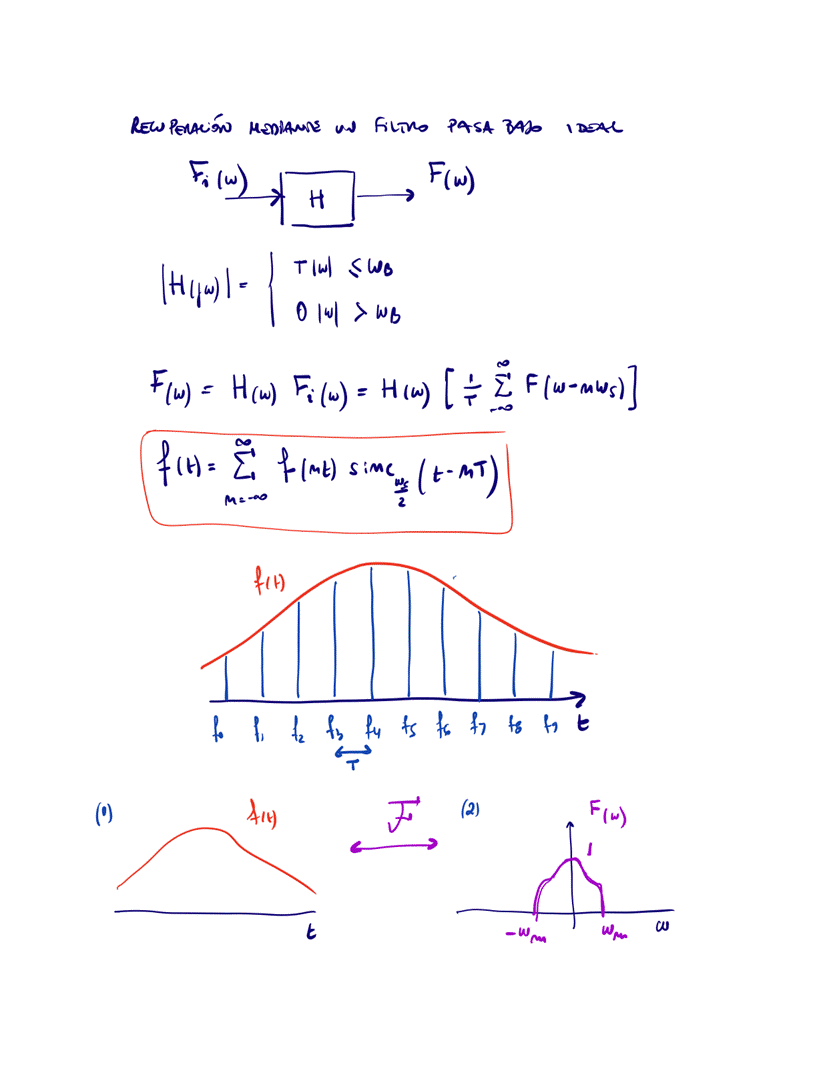 RECUPERACIÓN MEDIANTE UN FILTRO PASA BAJO IDEAL
Fi(w) H F(w)
|H(jw)| = { T |w| ≤ wB
0 |w| > wB
F(w) = H(w) Fi(w) = H(w) [ 1/T ∑_{-∞}^{∞} F(w-nws) ]
f(t) = ∑_{n=-∞}^{∞} f(nt) sinc_{ws/2} (t-nT)
f(t)
f0 f1 f2 f3 f4 f5 f6 f7 f8 f9 t
T
(1) f(t) F (2) F(w)
1
t -wm wm w